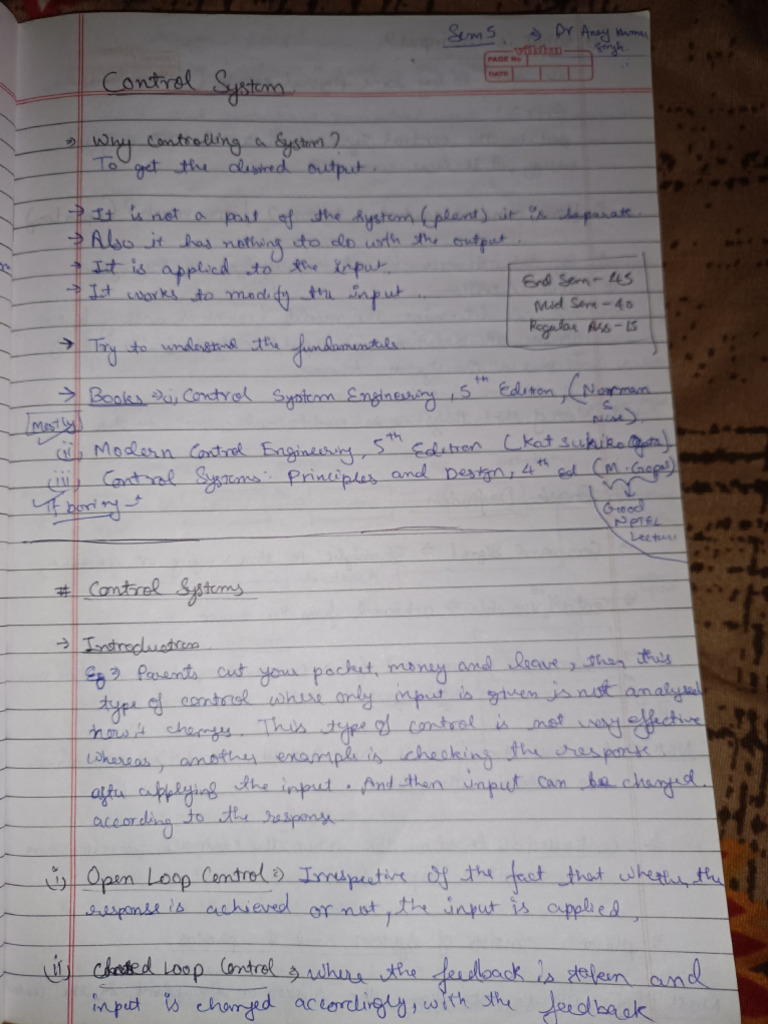 Sem 5 → Dr Anay Kumar
Singh.
PAGE NO
DATE
Control System
→ Why controlling a System?
To get the desired output.
→ It is not a part of the system (plant) it is separate.
→ Also it has nothing to do with the output.
→ It is applied to the input.
→ It works to modify the input.
End Sem - 45
Mid Sem - 40
Regular Ass - 15
→ Try to understand the fundamentals
→ Books → i, Control System Engineering, 5th Edition, (Norman
S
Nise).
Mostly
(ii) Modern Control Engineering, 5th Edition (Katsuhiko Ogata)
(iii) Control Systems: Principles and Design, 4th ed (M. Gopal)
If boring
Good
NPTEL
Lecture
# Control Systems
→ Introduction
Eg → Parents cut your pocket money and leave, then this
type of control where only input is given is not analysed
how it changes. This type of control is not very effective
whereas, another example is checking the response
after applying the input. And then input can be changed
according to the response
(i) Open Loop Control → Irrespective of the fact that whether the
response is achieved or not, the input is applied,
(ii) Closed Loop Control → where the feedback is taken and
input is changed accordingly, with the feedback